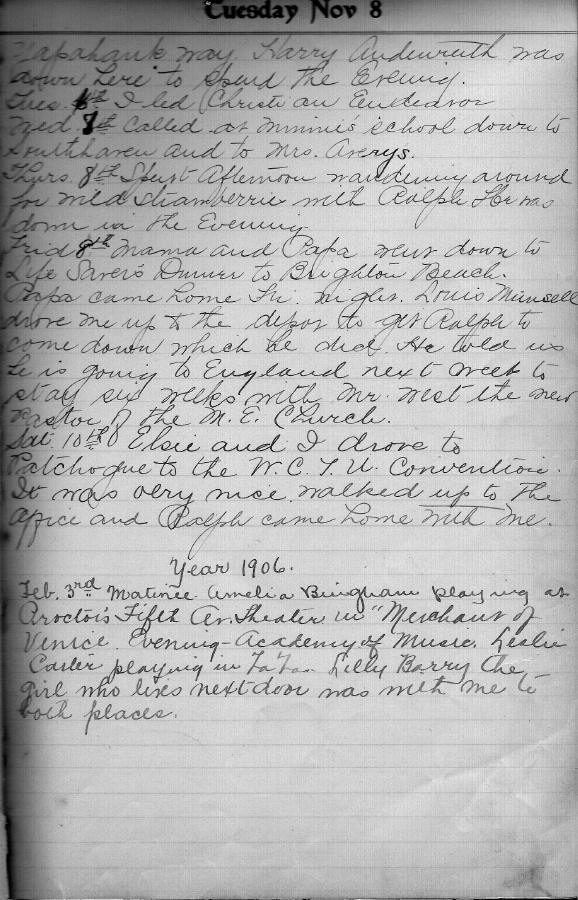 Tuesday Nov 8
Yapahank way. Harry Audenreith was
down here to spend the Evening.
Tues. 6th I led Christian Endeavor
Wed 7th Called at Minnie's school down to
Southhaven and to Mrs. Averys.
Thurs. 8th Spent Afternoon wandering around
for wild strawberrie with Ralph He was
down in the Evening.
Frid 8th Mama and Papa went down to
Life Savers Dinner to Brighton Beach.
Papa came home Fri. night. Louis Munsell
drove me up to the depot to get Ralph to
come down which he did. He told us
he is going to England next week to
stay six weeks with Mr. West the new
Pastor of the M. E. Church.
Sat. 10th Elsie and I drove to
Patchogue to the W. C. T. U. Convention.
It was very nice. walked up to the
office and Ralph came home with me.
Year 1906.
Feb. 3rd Matinee. Amelia Bingham playing at
Proctor's Fifth Av. Theater in "Merchant of
Venice. Evening - Academy of Music. Leslie
Carter playing in Lilly Barry the
girl who lives next door was with me to
both places.